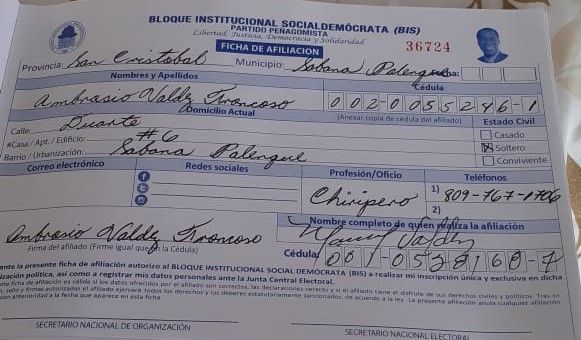 BLOQUE INSTITUCIONAL SOCIALDEMÓCRATA (BIS)
PARTIDO PEÑAGOMISTA
Libertad, Justicia, Democracia y Solidaridad
FICHA DE AFILIACION 36724
Provincia: San Cristobal Municipio: Sabana Palenque
Nombres y Apellidos Cédula
Ambrasio Valdez Troncoso 002-0055246-1
Domicilio Actual (Anexar copia de cédula del afiliado) Estado Civil
Calle: Duarte Casado
#Casa / Apt. / Edificio: #6 Soltero
Barrio / Urbanización: Sabana Palenque Conviviente
Correo electrónico Redes sociales Profesión/Oficio Teléfonos
Chiripero 1) 809-767-1706
2)
Ambrasio Valdez Troncoso Nombre completo de quien realiza la afiliación
Firma del afiliado (Firme igual que en la Cédula) Valdez
Cédula: 001-0528168-7
ante la presente ficha de afiliación autorizo al BLOQUE INSTITUCIONAL SOCIAL DEMÓCRATA (BIS) a realizar mi inscripción única y exclusiva en dicha
nización política, así como a registrar mis datos personales ante la Junta Central Electoral.
SECRETARIO NACIONAL DE ORGANIZACIÓN SECRETARIO NACIONAL ELECTORAL